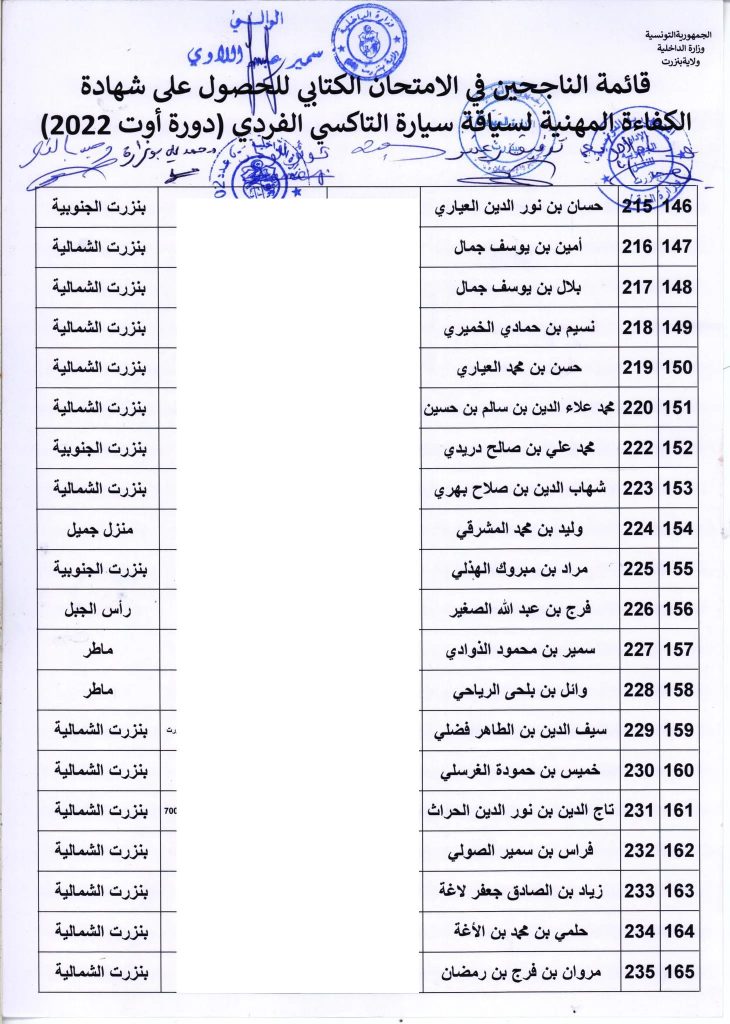 الجمهورية التونسية
وزارة الداخلية
ولاية بنزرت
الوالي
سمير عبد اللاوي
قائمة الناجحين في الامتحان الكتابي للحصول على شهادة
الكفاءة المهنية لسياقة سيارة التاكسي الفردي (دورة أوت 2022)
146 215 حسان بن نور الدين العياري بنزرت الجنوبية
147 216 أمين بن يوسف جمال بنزرت الشمالية
148 217 بلال بن يوسف جمال بنزرت الشمالية
149 218 نسيم بن حمادي الخميري بنزرت الشمالية
150 219 حسن بن محمد العياري بنزرت الشمالية
151 220 محمد علاء الدين بن سالم بن حسين بنزرت الشمالية
152 222 محمد علي بن صالح دريدي بنزرت الجنوبية
153 223 شهاب الدين بن صلاح بهري بنزرت الشمالية
154 224 وليد بن محمد المشرقي منزل جميل
155 225 مراد بن مبروك الهذلي بنزرت الجنوبية
156 226 فرج بن عبد الله الصغير رأس الجبل
157 227 سمير بن محمود الذوادي ماطر
158 228 وائل بن بلحى الرياحي ماطر
159 229 سيف الدين بن الطاهر فضلي بنزرت الشمالية
160 230 خميس بن حمودة الغرسلي بنزرت الشمالية
161 231 تاج الدين بن نور الدين الحراث 700 بنزرت الشمالية
162 232 فراس بن سمير الصولي بنزرت الشمالية
163 233 زياد بن الصادق جعفر لاغة بنزرت الشمالية
164 234 حلمي بن محمد بن الأغة بنزرت الشمالية
165 235 مروان بن فرج بن رمضان بنزرت الشمالية